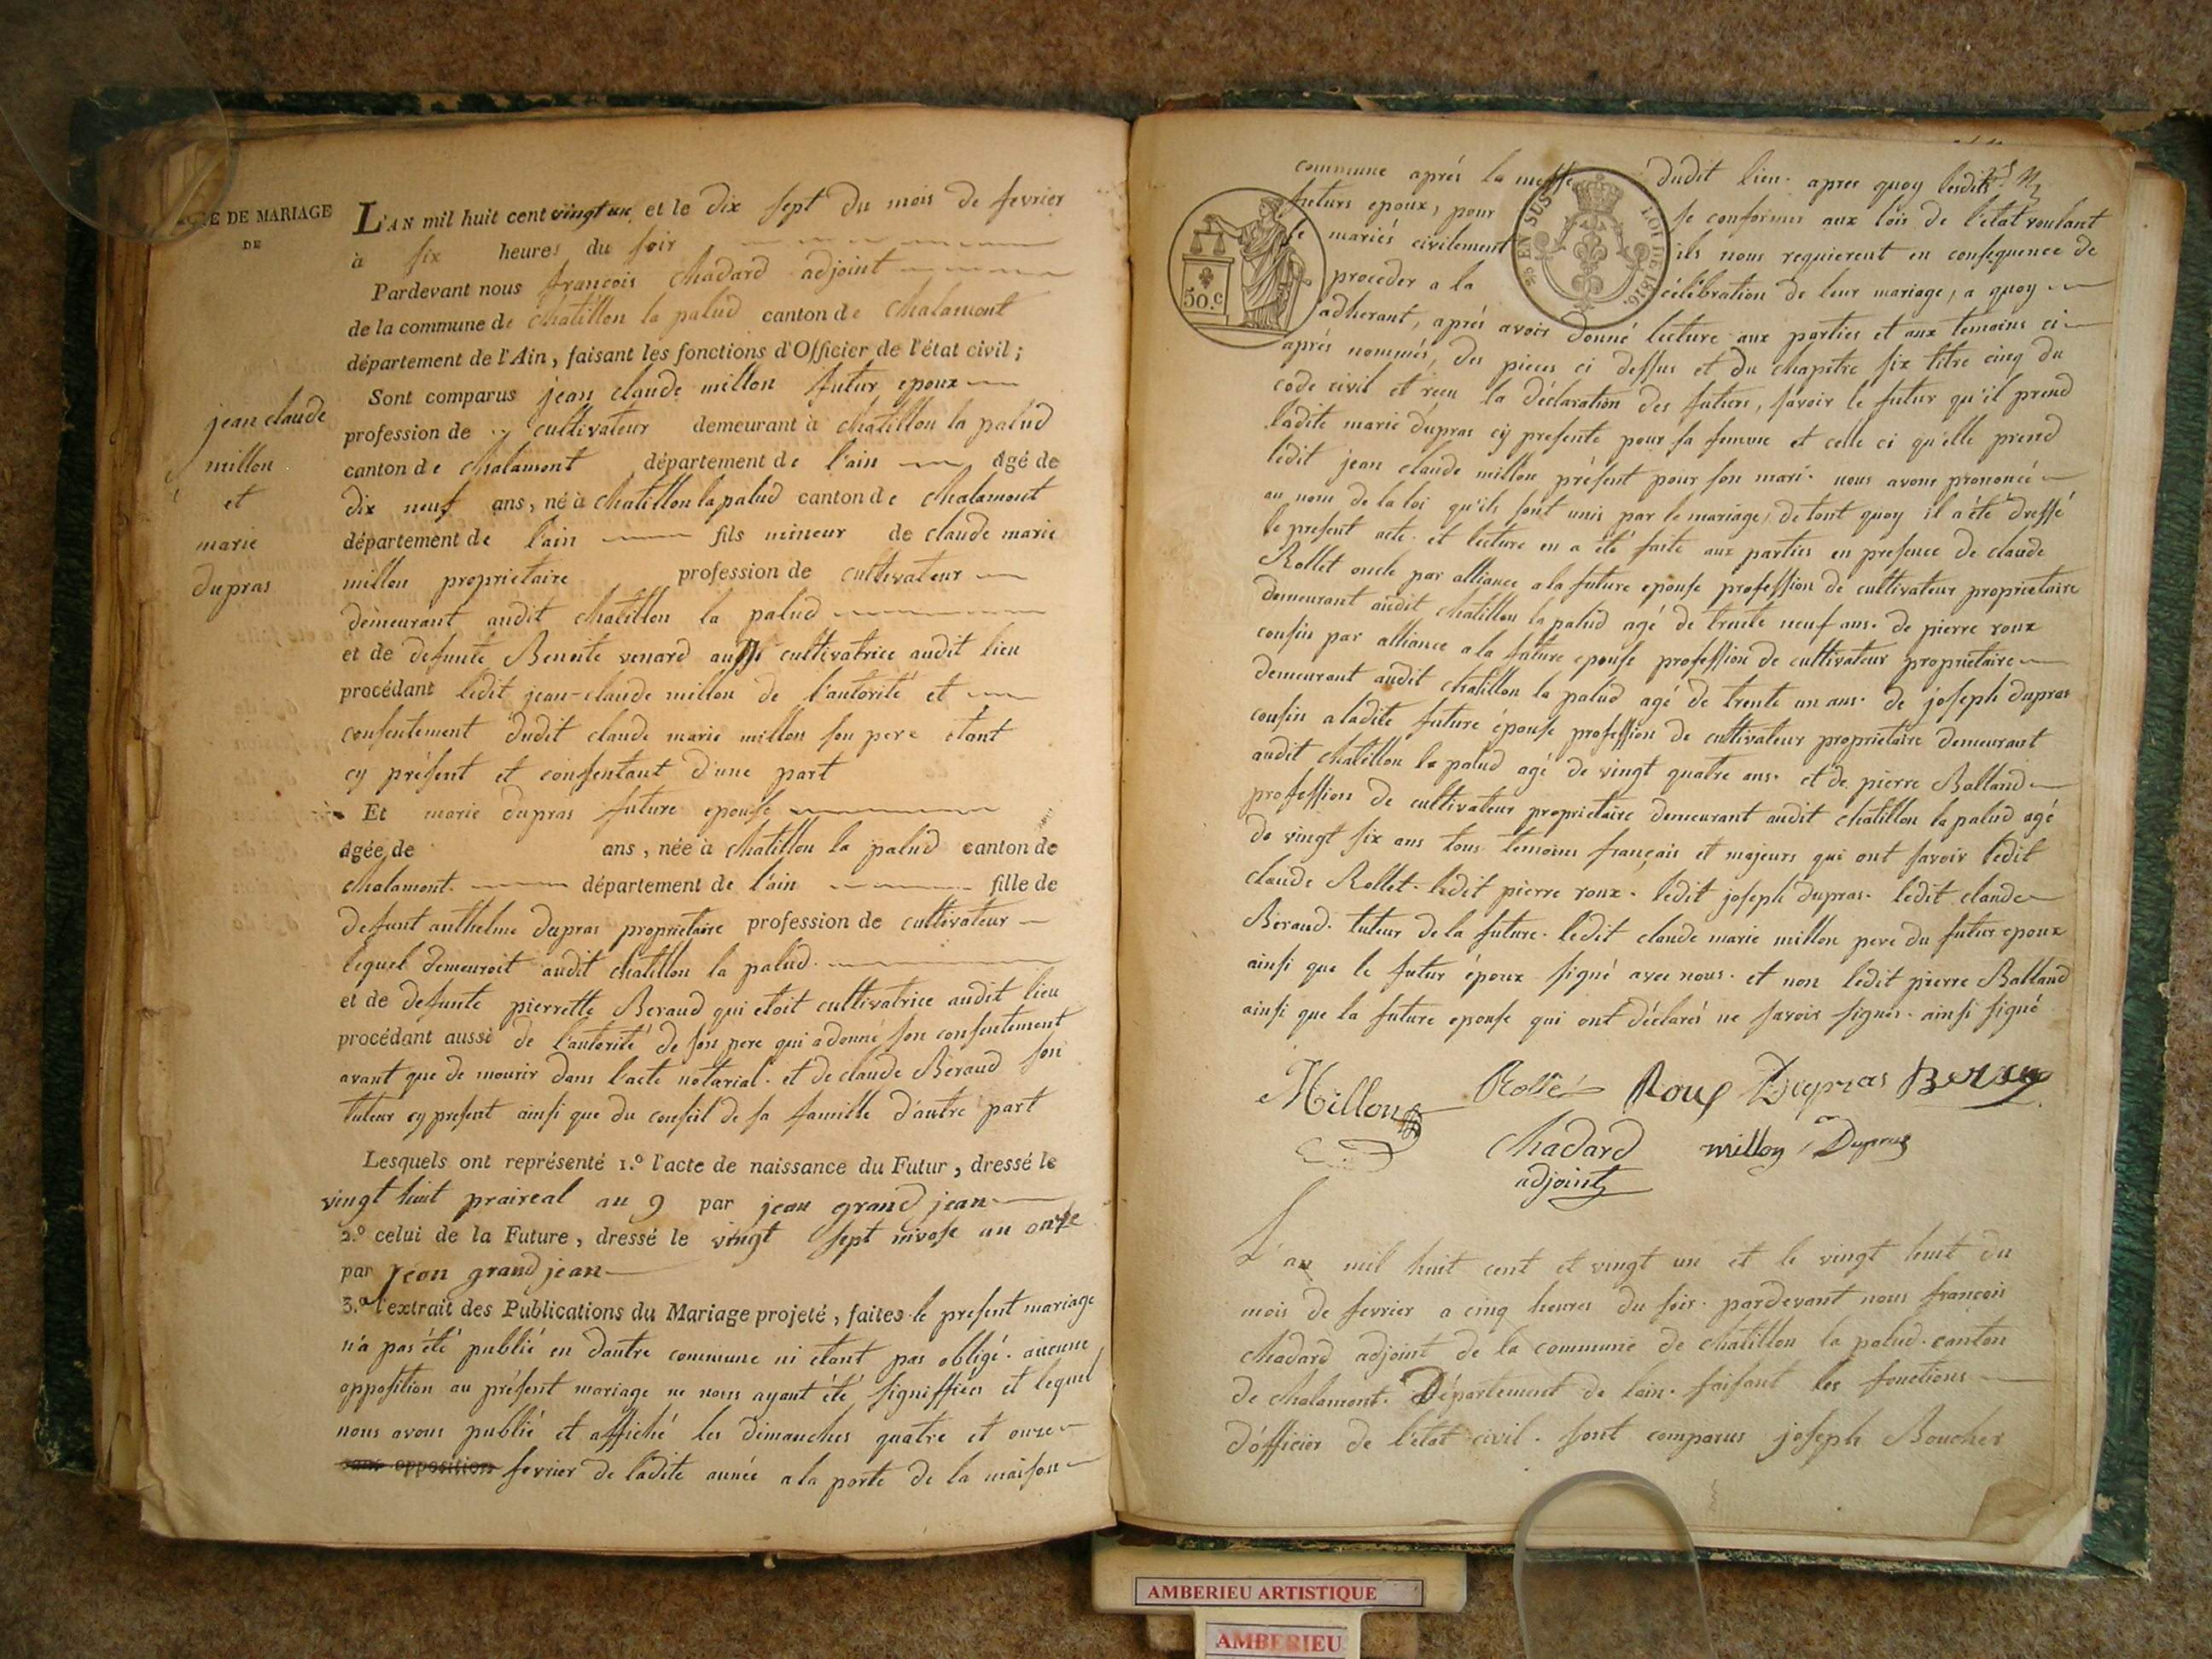 ACTE DE MARIAGE
DE
jean claude
millon
et
marie
dupras
L'AN mil huit cent vingt un, et le dix sept du mois de fevrier
à six heures du soir
Pardevant nous françois chadard adjoint
de la commune de chatillon la palud canton de chalamont
département de l'Ain, faisant les fonctions d'Officier de l'état civil;
Sont comparus jean claude millon futur epoux
profession de cultivateur demeurant à chatillon la palud
canton de chalamont département de l'ain âgé de
dix neuf ans, né à chatillon la palud canton de chalamont
département de l'ain fils mineur de claude marie
millon proprietaire profession de cultivateur
demeurant audit chatillon la palud
et de defunte Benoite venard aussi cultivatrice audit lieu
procédant ledit jean-claude millon de l'autorité et
consentement dudit claude marie millon son pere étant
cy présent et consentant d'une part
Et marie dupras future epouse
âgée de ans, née à chatillon la palud canton de
chalamont. département de l'ain fille de
defunt anthelme dupras proprietaire profession de cultivateur
lequel demeuroit audit chatillon la palud.
et de defunte pierrette Beraud qui etoit cultivatrice audit lieu
procédant aussi de l'autorité de son pere qui a donné son consentement
avant que de mourir dans l'acte notarial. et de claude Beraud son
tuteur cy present ainsi que du conseil de sa famille d'autre part
Lesquels ont représenté 1.º l'acte de naissance du Futur, dressé le
vingt huit praireal an 9 par jean grand jean
2.º celui de la Future, dressé le vingt sept nivose an onze
par jean grand jean
3.º l'extrait des Publications du Mariage projeté, faites. le present mariage
n'a pas été publié en dautre commune ni etant pas obligé. aucune
opposition au présent mariage ne nous ayant été signiffiées et lequel
nous avons publié et affiché les dimanches quatre et onze
sans opposition fevrier de ladite année a la porte de la maison
commune aprés la messe dudit lieu. apres quoy lesdits
futurs epoux, pour se conformer aux lois de l'etat voulant
mariés civilement ils nous requierent en consequence de
proceder a la célébration de leur mariage, a quoy
adherant, aprés avoir donné lecture aux parties et aux temoins ci
aprés nommés, des pieces ci dessus et du chapitre six titre cinq du
code civil et reçu la déclaration des futurs, savoir le futur qu'il prend
ladite marie dupras cy presente pour sa femme et celle ci qu'elle prend
ledit jean claude millon présent pour son mari. nous avons prononcé
au nom de la loi qu'ils sont unis par le mariage, de tout quoy il a été dressé
le present acte. et lecture en a été faite aux parties en presence de claude
Rollet oncle par alliance a la future epouse profession de cultivateur proprietaire
demeurant audit chatillon la palud agé de trente neuf ans. de pierre roux
cousin par alliance a la future epouse profession de cultivateur proprietaire
demeurant audit chatillon la palud agé de trente un ans. de joseph dupras
cousin a ladite future épouse profession de cultivateur proprietaire demeurant
audit chatillon la palud agé de vingt quatre ans. et de pierre Balland
profession de cultivateur proprietaire demeurant audit chatillon la palud agé
de vingt six ans tous temoins français et majeurs qui ont savoir ledit
claude Rollet. ledit pierre roux. ledit joseph dupras. ledit claude
Beraud. tuteur de la future. ledit claude marie millon pere du futur epoux
ainsi que le futur époux signé avec nous. et non ledit pierre Balland
ainsi que la future epouse qui ont déclarés ne savoir signer. ainsi signé
Millon Rollé Roux Dupras Beraud
chadard millon Dupras
adjoint
L'an mil huit cent et vingt un et le vingt huit du
mois de fevrier a cinq heures du soir. pardevant nous françois
chadard adjoint de la commune de chatillon la palud. canton
de chalamont. Département de lain. faisant les fonctions
d'officier de l'état civil. sont comparus joseph Boucher
50.c
EN SUS
LOI DE 1816.
AMBERIEU ARTISTIQUE
AMBERIEU